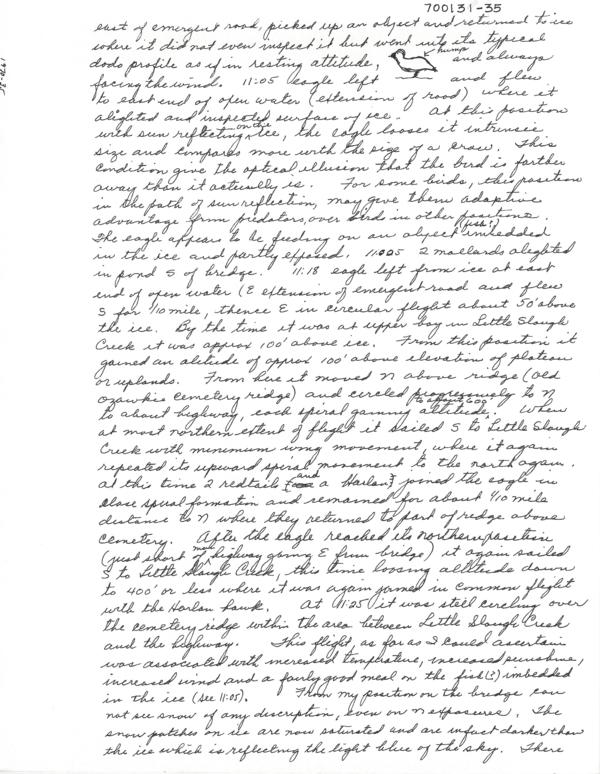 700131-35
east of emergent road, picked up an object and returned to ice
where it did not even inspect it but went into its typical
dodo profile as if in resting attitude, hump and always
facing the wind. 11:05 eagle left and flew
to east end of open water (extension of road) where it
alighted and inspected surface of ice. At this position
with sun reflecting on the ice, the eagle looses it intrinsic
size and compares more with the size of a crow. This
condition give the optical illusion that the bird is farther
away than it actually is. For some birds, this position
in the path of sun reflection, may give them adaptive
advantage from predators, over bird in other positions.
The eagle appears to be feeding on an object (fish?) imbedded
in the ice and partly exposed. 11:05 2 mallards alighted
in pond S of bridge. 11:18 eagle left from ice at east
end of open water (E extension of emergent road and flew
S for 1/10 mile, thence E in circular flight about 50' above
the ice. By the time it was at upper bay in Little Slough
Creek it was approx 100' above ice. From this position it
gained an altitude of approx 100' above elevation of plateau
or uplands. From here it moved N above ridge (Old
Ozawkie cemetery ridge) and circled progressively to N
to about highway, each spiral gaining altitude. When
at most northern extent of flight it sailed S to Little Slough
Creek with minimum wing movement, where it again
repeated its upward spiral movement to the north again.
At this time 2 redtail and a Harlan joined the eagle in
close spiral formation and remained for about 1/10 mile
distance to N where they returned to part of ridge above
cemetery. After the eagle reached its northern position
(just short of highway going E from bridge) it again sailed
S to Little Slough Creek, this time loosing altitude down
to 400' or less where it was again joined in common flight
with the Harlan hawk. At 11:25 it was still circling over
the cemetery ridge within the area between Little Slough Creek
and the highway. This flight, as far as I could ascertain
was associated with increased temperature, increased sunshine,
increased wind and a fairly good meal on the fish(?) imbedded
in the ice (see 11:05). From my position on the bridge can
not see snow of any discription, even on N exposures. The
snow patches on ice are now saturated and are infact darker than
the ice which is reflecting the light blue of the sky. There